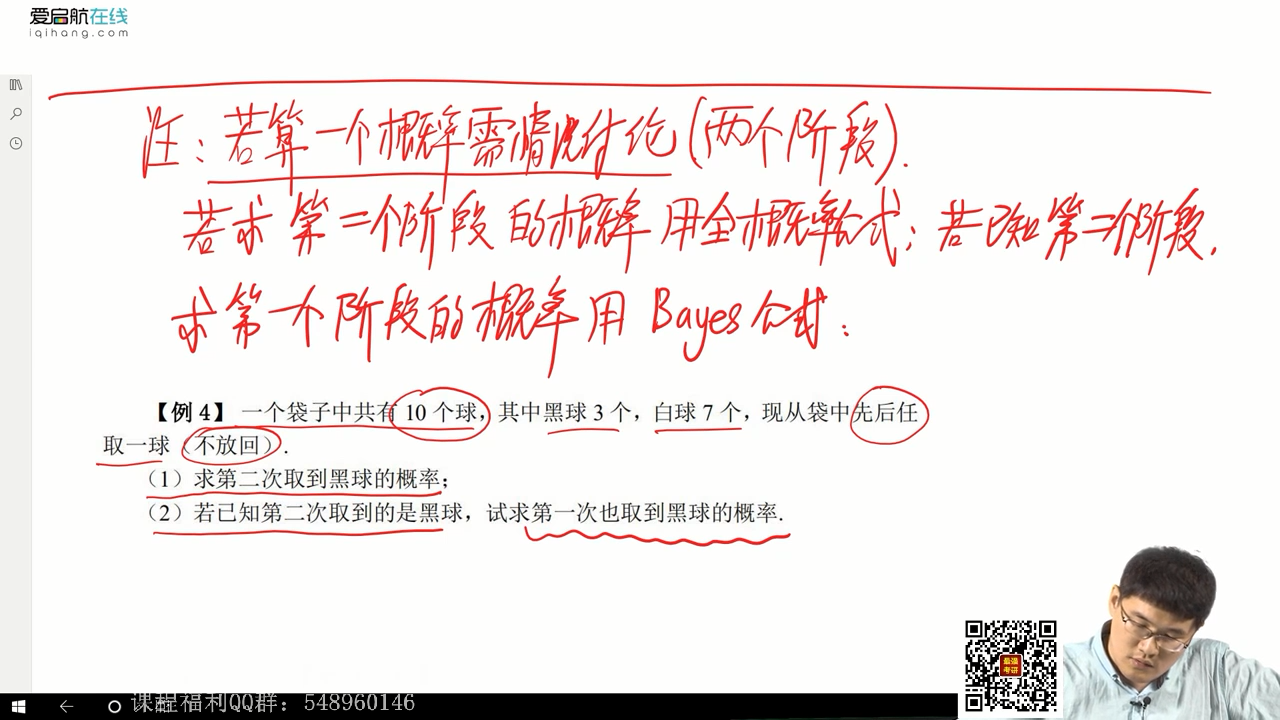 爱启航在线
iqihang.com
注：若算一个概率需情况讨论(两个阶段).
若求第二个阶段的概率用全概率公式；若已知第二个阶段,
求第一个阶段的概率用Bayes公式：
【例 4】 一个袋子中共有 10 个球，其中黑球 3 个，白球 7 个，现从袋中先后任
取一球（不放回）.
（1）求第二次取到黑球的概率；
（2）若已知第二次取到的是黑球，试求第一次也取到黑球的概率.
最强
考研
课程福利QQ群：548960146